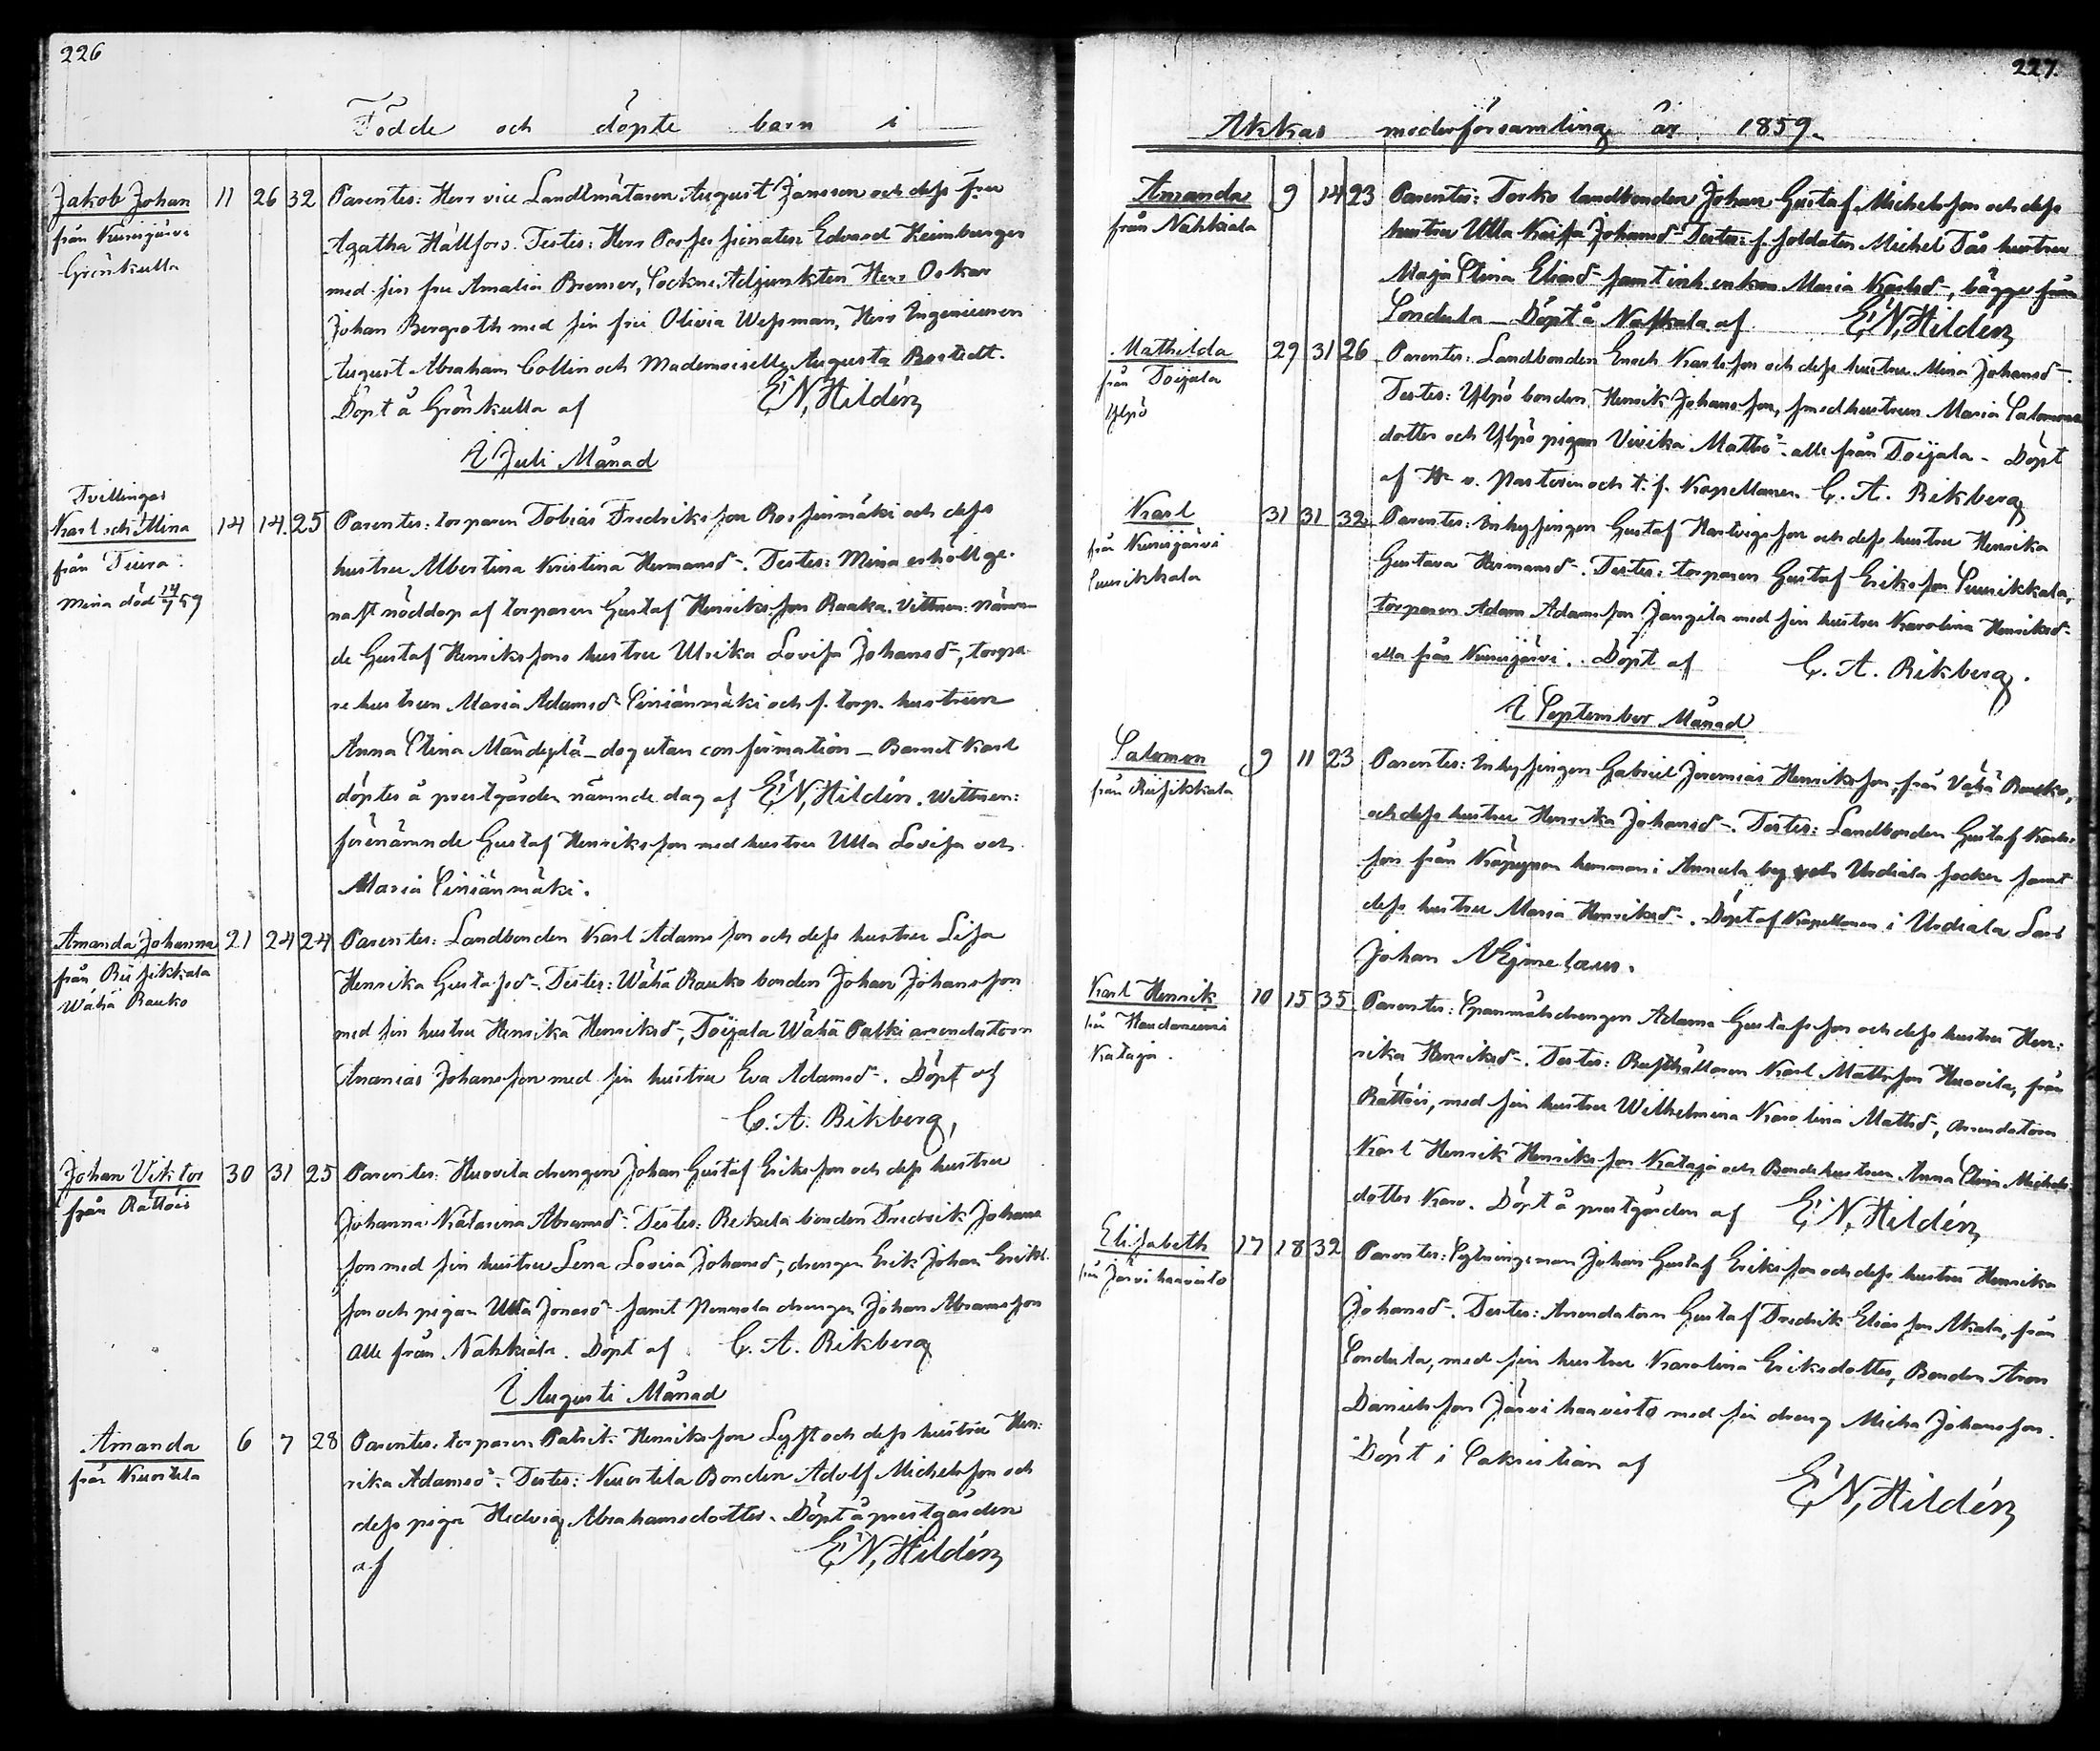 226
Födde och döpte barn i
Jakob Johan 11 26 32 Parentes: Herr vice Landtmätaren August Jansson och dess fru
från Kurisjärvi Agatha Hällfors. Testes: Herr Possessionaten Edvard Heimburger
Grönkulla
med sin fru Amalia Bremer, Sockne Adjunkten Herr Oskar
Johan Bergroth med sin fru Olivia Wessman, Herr Ingenieuren
August Abraham Collin och Mademoiselle Augusta Bostedt.
Döpt å Grönkulla af E.N. Hildén
I Juli Månad
Tvillingar
Karl och Mina 14 14. 25 Parentes: torparen Tobias Fredriksson Rossinmäki och dess
från Tiura. hustru Albertina Kristina Hermansd:r. Testes: Mina erhöll ge-
Mina död 14/7 59
nast nöddop af torparen Gustaf Henriksson Rauka. Vittnen: nämn-
de Gustaf Henrikssons hustru Ulrika Lovisa Johansd:r, torpa-
re hustrun Maria Adamsd:r Siniänmäki och f. torp. hustrun
Anna Stina Mändeylä – dog utan confirmation – Barnet Karl
döptes å prestgården nämnde dag af E.N. Hildén. Wittnen:
förenämnde Gustaf Henriksson med hustru Ulla Lovisa och
Maria Siniänmäki.
Amanda Johanna 21 24 24 Parentes: Landbonden Karl Adamsson och dess hustru Lisa
från Riisikkala Henrika Gustafsd:r. Testes: Wähä Rauko bonden Johan Johansson
Wähä Rauko
med sin hustru Henrika Henriksd:r, Toijala Wähä Palki arrendatorn
Ananias Johansson med sin hustru Eva Adamsd:r. Döpt af
C. A. Rikberg,
Johan Viktor 30 31 25 Parentes: Huovila drengen Johan Gustaf Eriksson och dess hustru
från Rättöis Johanna Katarina Abramsd:r. Testes: Reikula bonden Fredrik Johans
son med sin hustru Lena Lovisa Johansd:r, drengen Erik Johan Eriks-
son och pigan Ulla Jonasd:r samt Pennola drengen Johan Abramsson
alle från Nahkiala. Döpt af C. A. Rikberg
I Augusti Månad
Amanda 6 7 28 Parentes: torparen Patrik Henriksson Lyyst och dess hustru Hen-
från Kurvitila rika Adamsd:r. Testes: Kurvitila Bonden Adolf Michelsson och
dess piga Hedvig Abrahamsdotter. Döpt å prestgården
af E.N. Hildén
227.
Akkas moderförsamling år 1859.
Amanda 9 14 23 Parentes: Torko landbonden Johan Gustaf Michelsson och dess
från Nahkiala hustru Ulla Kaisa Johansd:r Testes: f. soldaten Michel Tås hustru
Maja Stina Eliasd:r samt inh. enkan Maria Karlsd:r, bägge från
Sondula – Döpt å Nahkala af E.N. Hildén
Mathilda 29 31 26 Parentes: Landbonden Enoch Karlsson och dess hustru Mina Johansd:r.
från Toijala Testes: Ylpö bonden Henrik Johansson, med hustrun Maria Salomons
Ylpö
dotter och Ylpö pigan Virika Mattsd:r alle från Toijala – Döpt
af Hr v. Pastoren och t.f. Kapellanen C. A. Rikberg
Karl 31 31 32. Parentes: Inhysingen Gustaf Hartvigsson och dess hustru Henrika
från Kurisjärvi Gustava Hermansd:r. Testes: torparen Gustaf Eriksson Suurikkala,
Suurikkala
torparen Adam Adamsson Jangila med sin hustru Karolina Henriksd:r
alla från Kurisjärvi. Döpt af C. A. Rikberg.
I September Månad
Salomon 9 11 23 Parentes: Inhysingen Gabriel Jeremias Henriksson, från Vähä Rauko,
från Riisikkala och dess hustru Henrika Johansd:r. Testes: Landbonden Gustaf Karls-
son från hemman i Annula by och Urdiala socken samt
dess hustru Maria Henriksd:r. Döpt af Kapellanen i Urdiala Lars
Johan Argimelaus.
Karl Henrik 10 15 35. Parentes: Spanmålsdrengen Adam Gustafsson och dess hustru Hen-
från Haudanemi rika Henriksd:r. Testes: Rusthållaren Karl Mattsson Huovila, från
Kataja.
Rättöis, med sin hustru Wilhelmina Karolina Mattsd:r, Arrendatorn
Karl Henrik Henriksson Kataja och Bondehustrun Anna Stina Michels-
dotter Karo. Döpt å prestgården af E.N. Hildén
Elisabeth 17 18 32 Parentes: Sytningsman Johan Gustaf Eriksson och dess hustru Henrika
från Järvihaavisto Johansd:r. Testes: Arrendatorn Gustaf Fredrik Eliasson Akala, från
Sondula, med sin hustru Karolina Eriksdotter, Bonden Aron
Danielsson Järvihaavisto med sin dreng Micha Johansson.
Döpt i Sakristian af E.N. Hildén